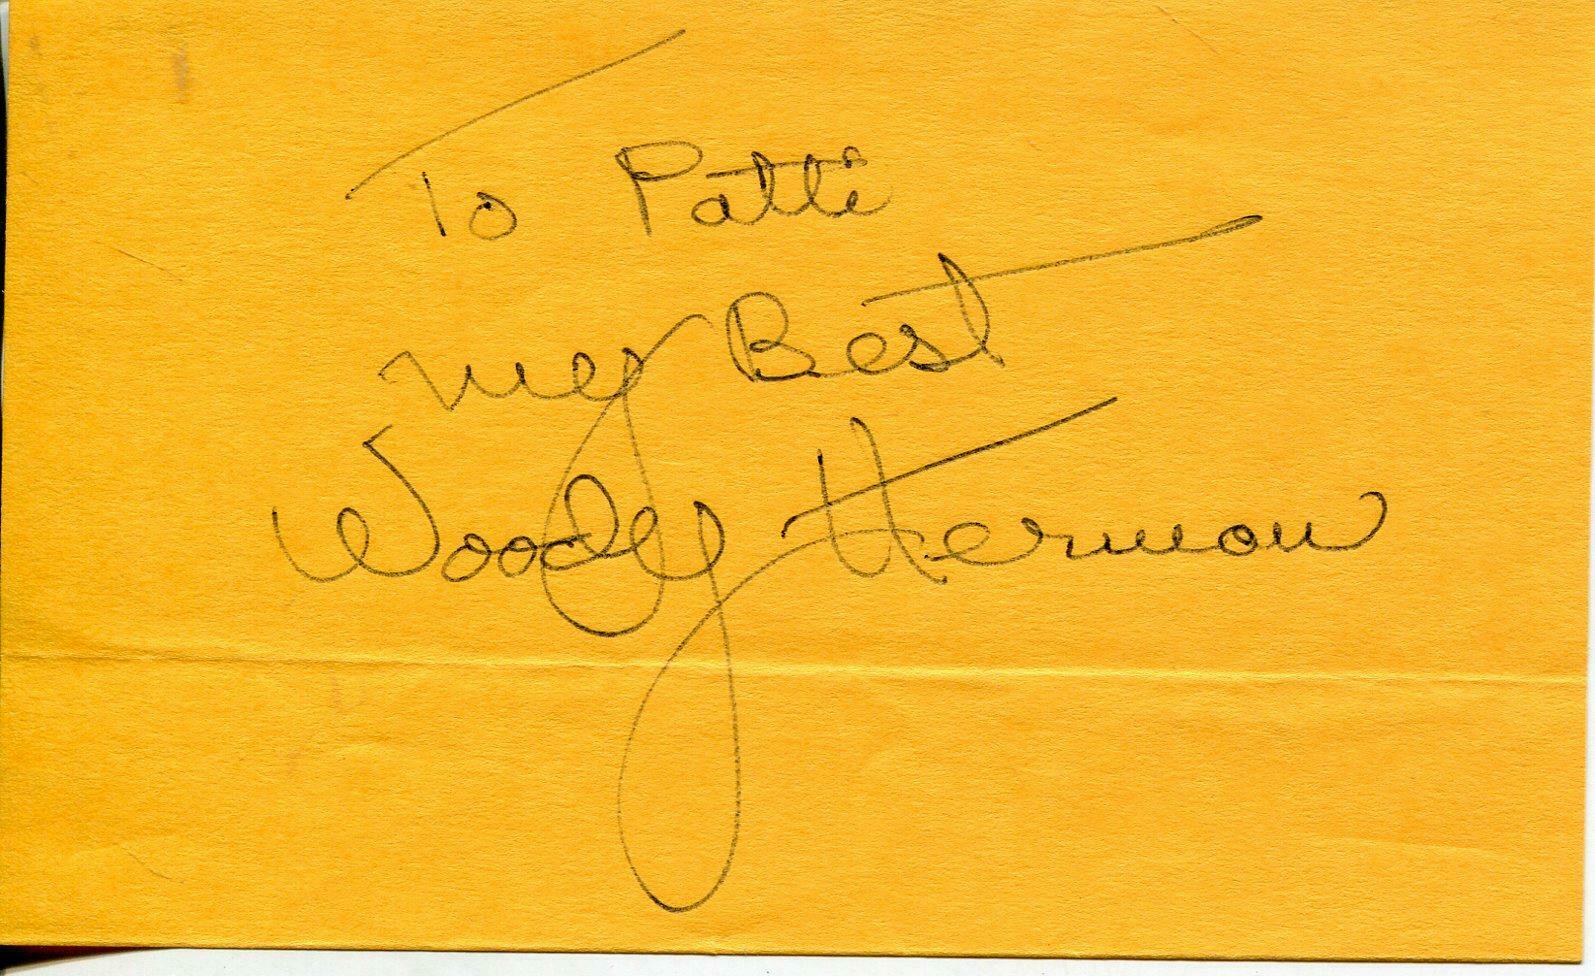 To Patti
My Best
Woody Herman